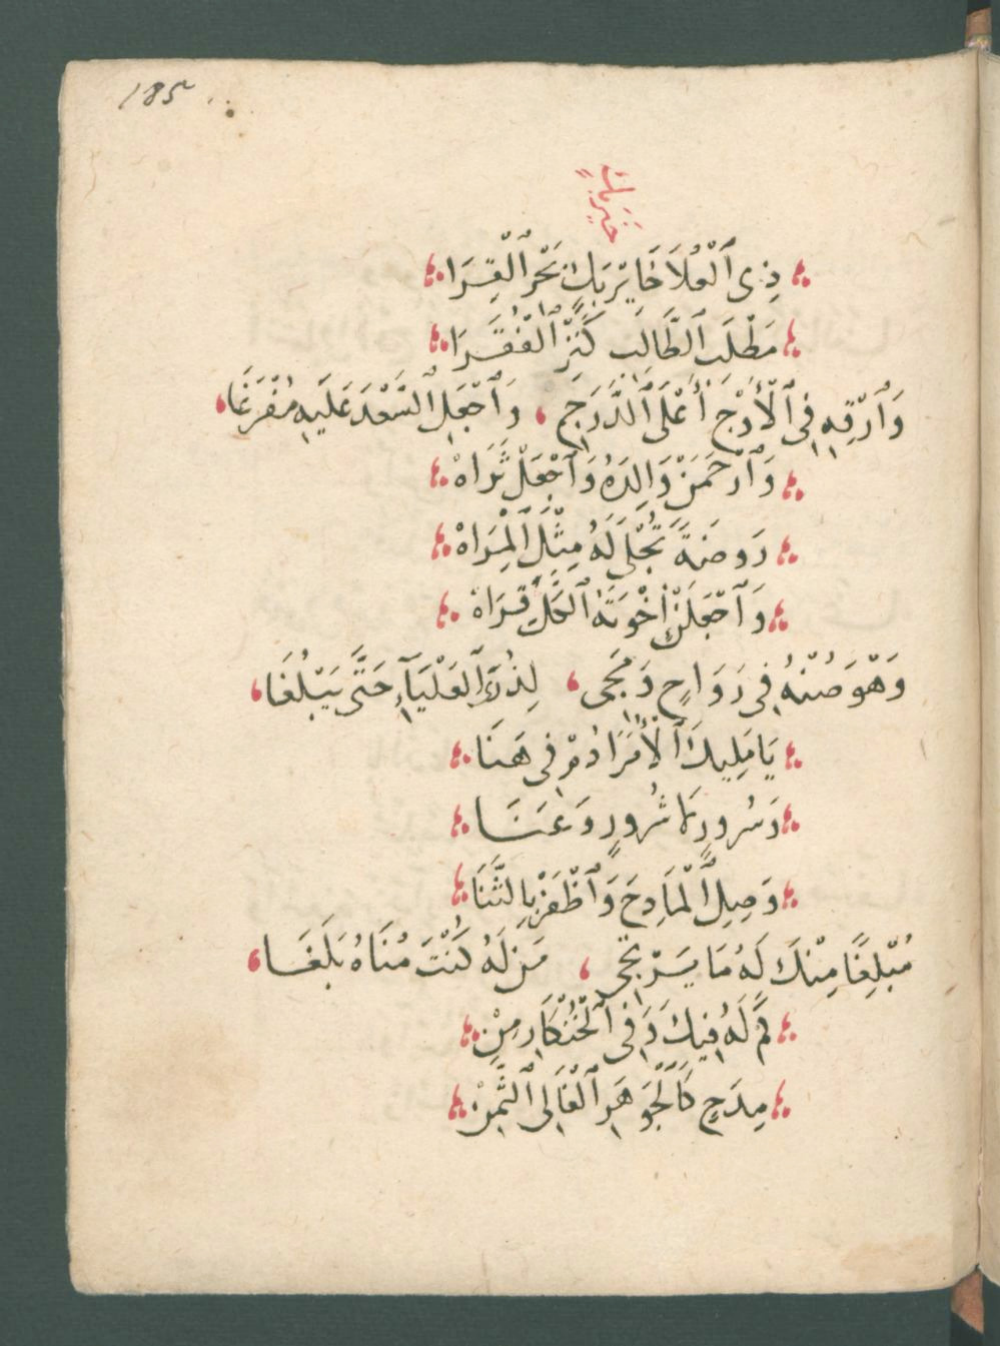 185
خير بك
ذِى ٱلْعُلَا خَايِرْ بَكٍ بَحْرِ ٱلْقِرَا
مَطْلَبِ ٱلطَّالِبِ كَنْزِ ٱلْفُقَرَا
وَٱرْقِهِ فِى ٱلْأَوْجِ أَعْلَى ٱلدَّرَجِ ، وَٱجْعَلِ ٱلسَّعْدَ عَلَيهِ مُفْرَغَا
وَٱرْحَمَنْ وَالِدَهُ وَٱجْعَلْ ثَرَاهْ
رَوضَةً تُجْلَى لَهُ مِثْلَ ٱلْمِرَاهْ
وَٱجْعَلَنْ إِخْوَتَهُ ٱلكُلَّ قِرَاهْ
وَهْوَ صُنْهُ فِى رَوَاحٍ وَمَجِى ، لِذُرَى ٱلعَلْيَآءِ حَتَّى يَبْلُغَا
يَا مَلِيكَ ٱلْأُمَرَا دُمْ فِى هَنَا
وَسُرُورٍ لَا شُرُورٍ وَعَنَا
وَصِلِ ٱلْمَادِحَ وَٱظْفَرْ بِالثَّنَا
مُبْلِغًا مِنْكَ لَهُ مَا يَرْتَجِى ، مَنْ لَهُ كُنْتَ مُنَاهُ بَلَغَا
كَمْ لَهُ فِيكَ وَفِى ٱلْخُنْكَارِ مِنْ
مِدَحٍ كَٱلْجَوهَرِ ٱلْغَالِى ٱلثَّمِنْ